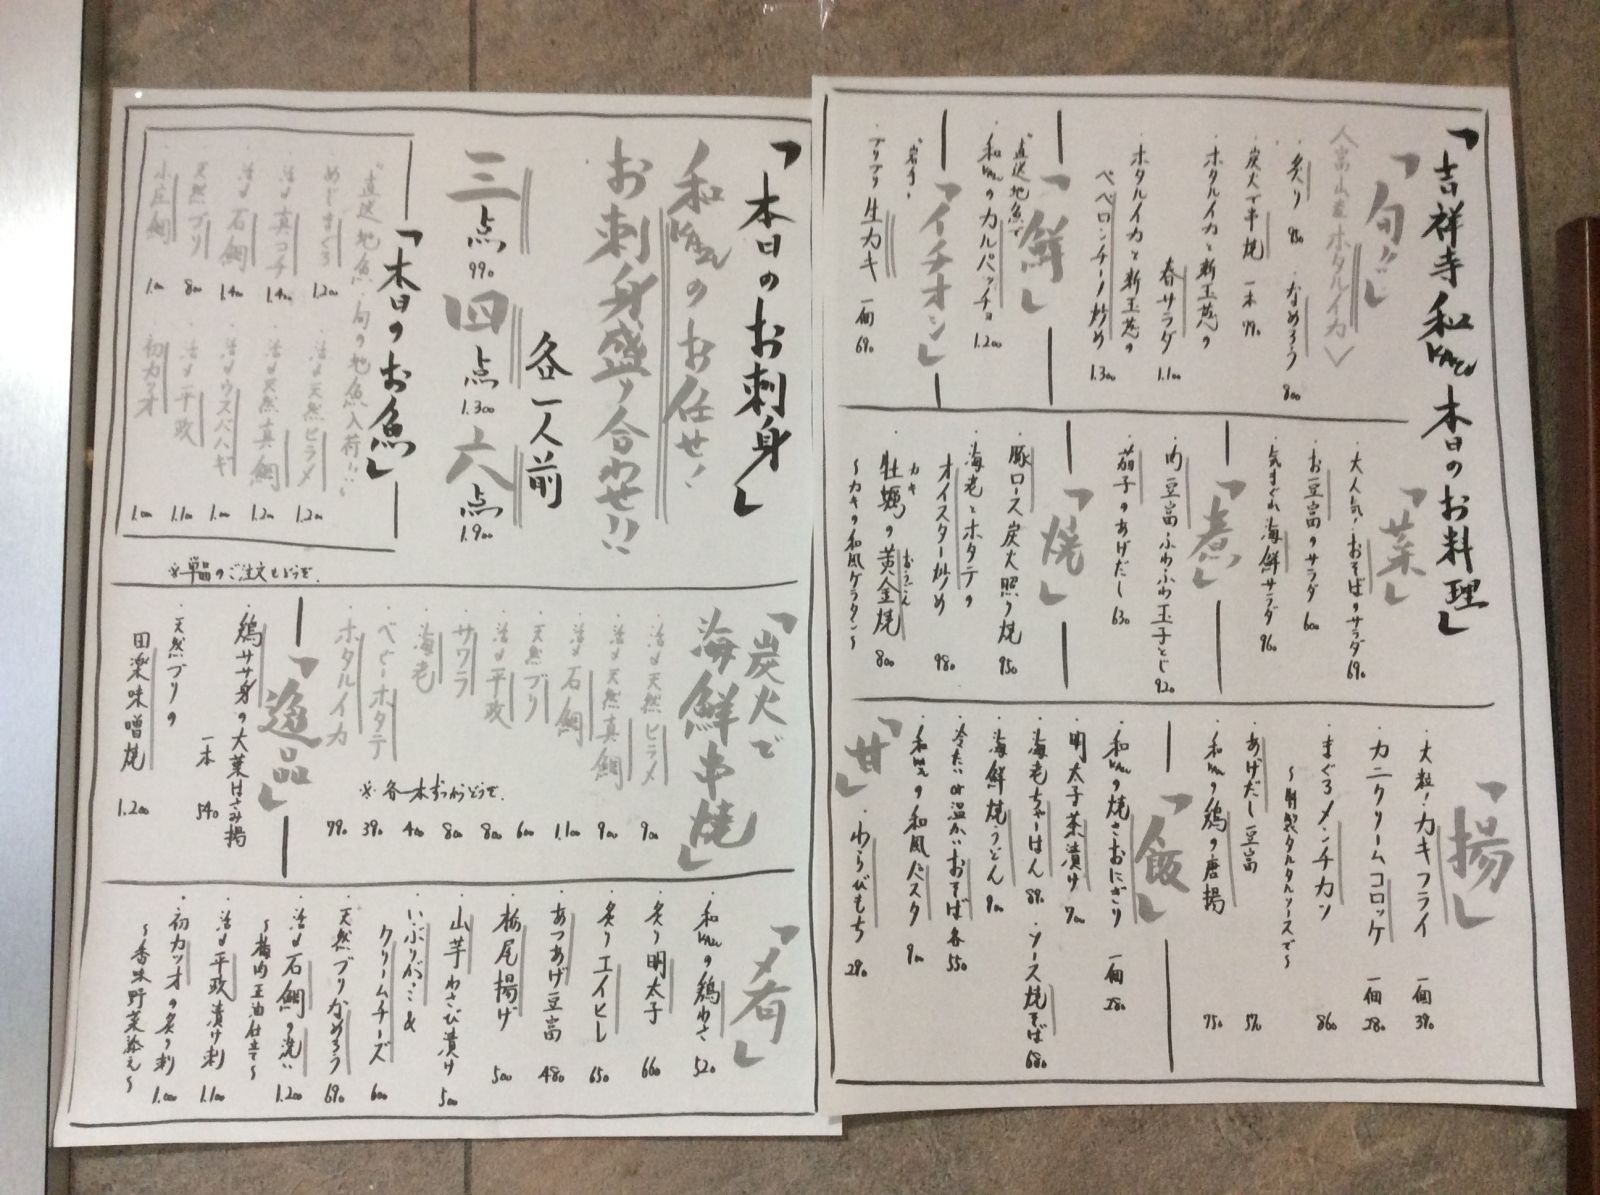 「吉祥寺 和KAZU 本日のお料理」
「旬グレ」
〈富山産ホタルイカ〉
・炙り 950 ・なめろう 800
・炭火で串焼 一本 790
・ホタルイカと新玉葱の
春サラダ 1.100
・ホタルイカと新玉葱の
ペペロンチーノ炒め 1.300
「鮮」
"直送地魚で
・和KAZUのカルパッチョ 1.200
「イチオシ」
"岩手"
・プリプリ生カキ 一個 690
「菜」
・大人気!おそばのサラダ 690
・お豆富のサラダ 600
・気まぐれ海鮮サラダ 960
「煮」
・肉豆富ふわふわ玉子とじ 920
・茄子のあげだし 630
「焼」
・豚ロース炭火照り焼 950
・海老とホタテの
オイスター炒め 980
カキ おうごん
・牡蠣の黄金焼 800
〜カキの和風グラタン〜
「揚」
・大粒!カキフライ 一個 390
・カニクリームコロッケ 一個 280
・まぐろメンチカツ 860
〜自製タルタルソースで〜
・あげだし豆富 570
・和KAZUの鶏の唐揚 750
「飯」
・和KAZUの焼きおにぎり 一個 280
・明太子茶漬け 700
・海老ちゃーはん 890 ・ソース焼そば 680
・海鮮焼うどん 900
・冷たいor温かいおそば 各550
・和KAZUの和風パスタ 900
「甘」
・わらびもち 290
「本日のお刺身」
和KAZUのお任せ!
お刺身盛り合わせ!!
各一人前
三点 990 四点 1.300 六点 1.900
「本日のお魚」
"直送地魚・旬の地魚入荷!!"
・めじまぐろ 1.200 ・活〆天然ヒラメ 1.200
・活〆真コチ 1.400 ・活〆天然真鯛 1.200
・活〆石鯛 1.400 ・活〆ウスバハギ 1.000
・天然ブリ 800 ・活〆平政 1.100
・小庄鯛 1.000 ・初カツオ 1.000
※単品のご注文もどうぞ。
「炭火で
海鮮串焼」
・活〆天然ヒラメ 900
・活〆天然真鯛 900
・活〆石鯛 1.100
・天然ブリ 600
・活〆平政 800
・サワラ 800
・海老 400
・ベビーホタテ 390
・ホタルイカ 790
※各一本ずつからどうぞ。
「逸品」
・鶏ササ身の大葉はさみ揚
一本 540
・天然ブリの
田楽味噌焼 1.200
「肴」
・和KAZUの鶏わさ 520
・炙り明太子 660
・炙りエイヒレ 650
・あつあげ豆富 480
・栃尾揚げ 500
・山芋わさび漬け 500
・いぶりがっこ&
クリームチーズ 600
・天然ブリなめろう 690
・活〆石鯛の洗い 1.200
〜梅肉玉油仕立て〜
・活〆平政漬け刺 1.100
・初カツオの炙り刺 1.000
〜香味野菜添え〜